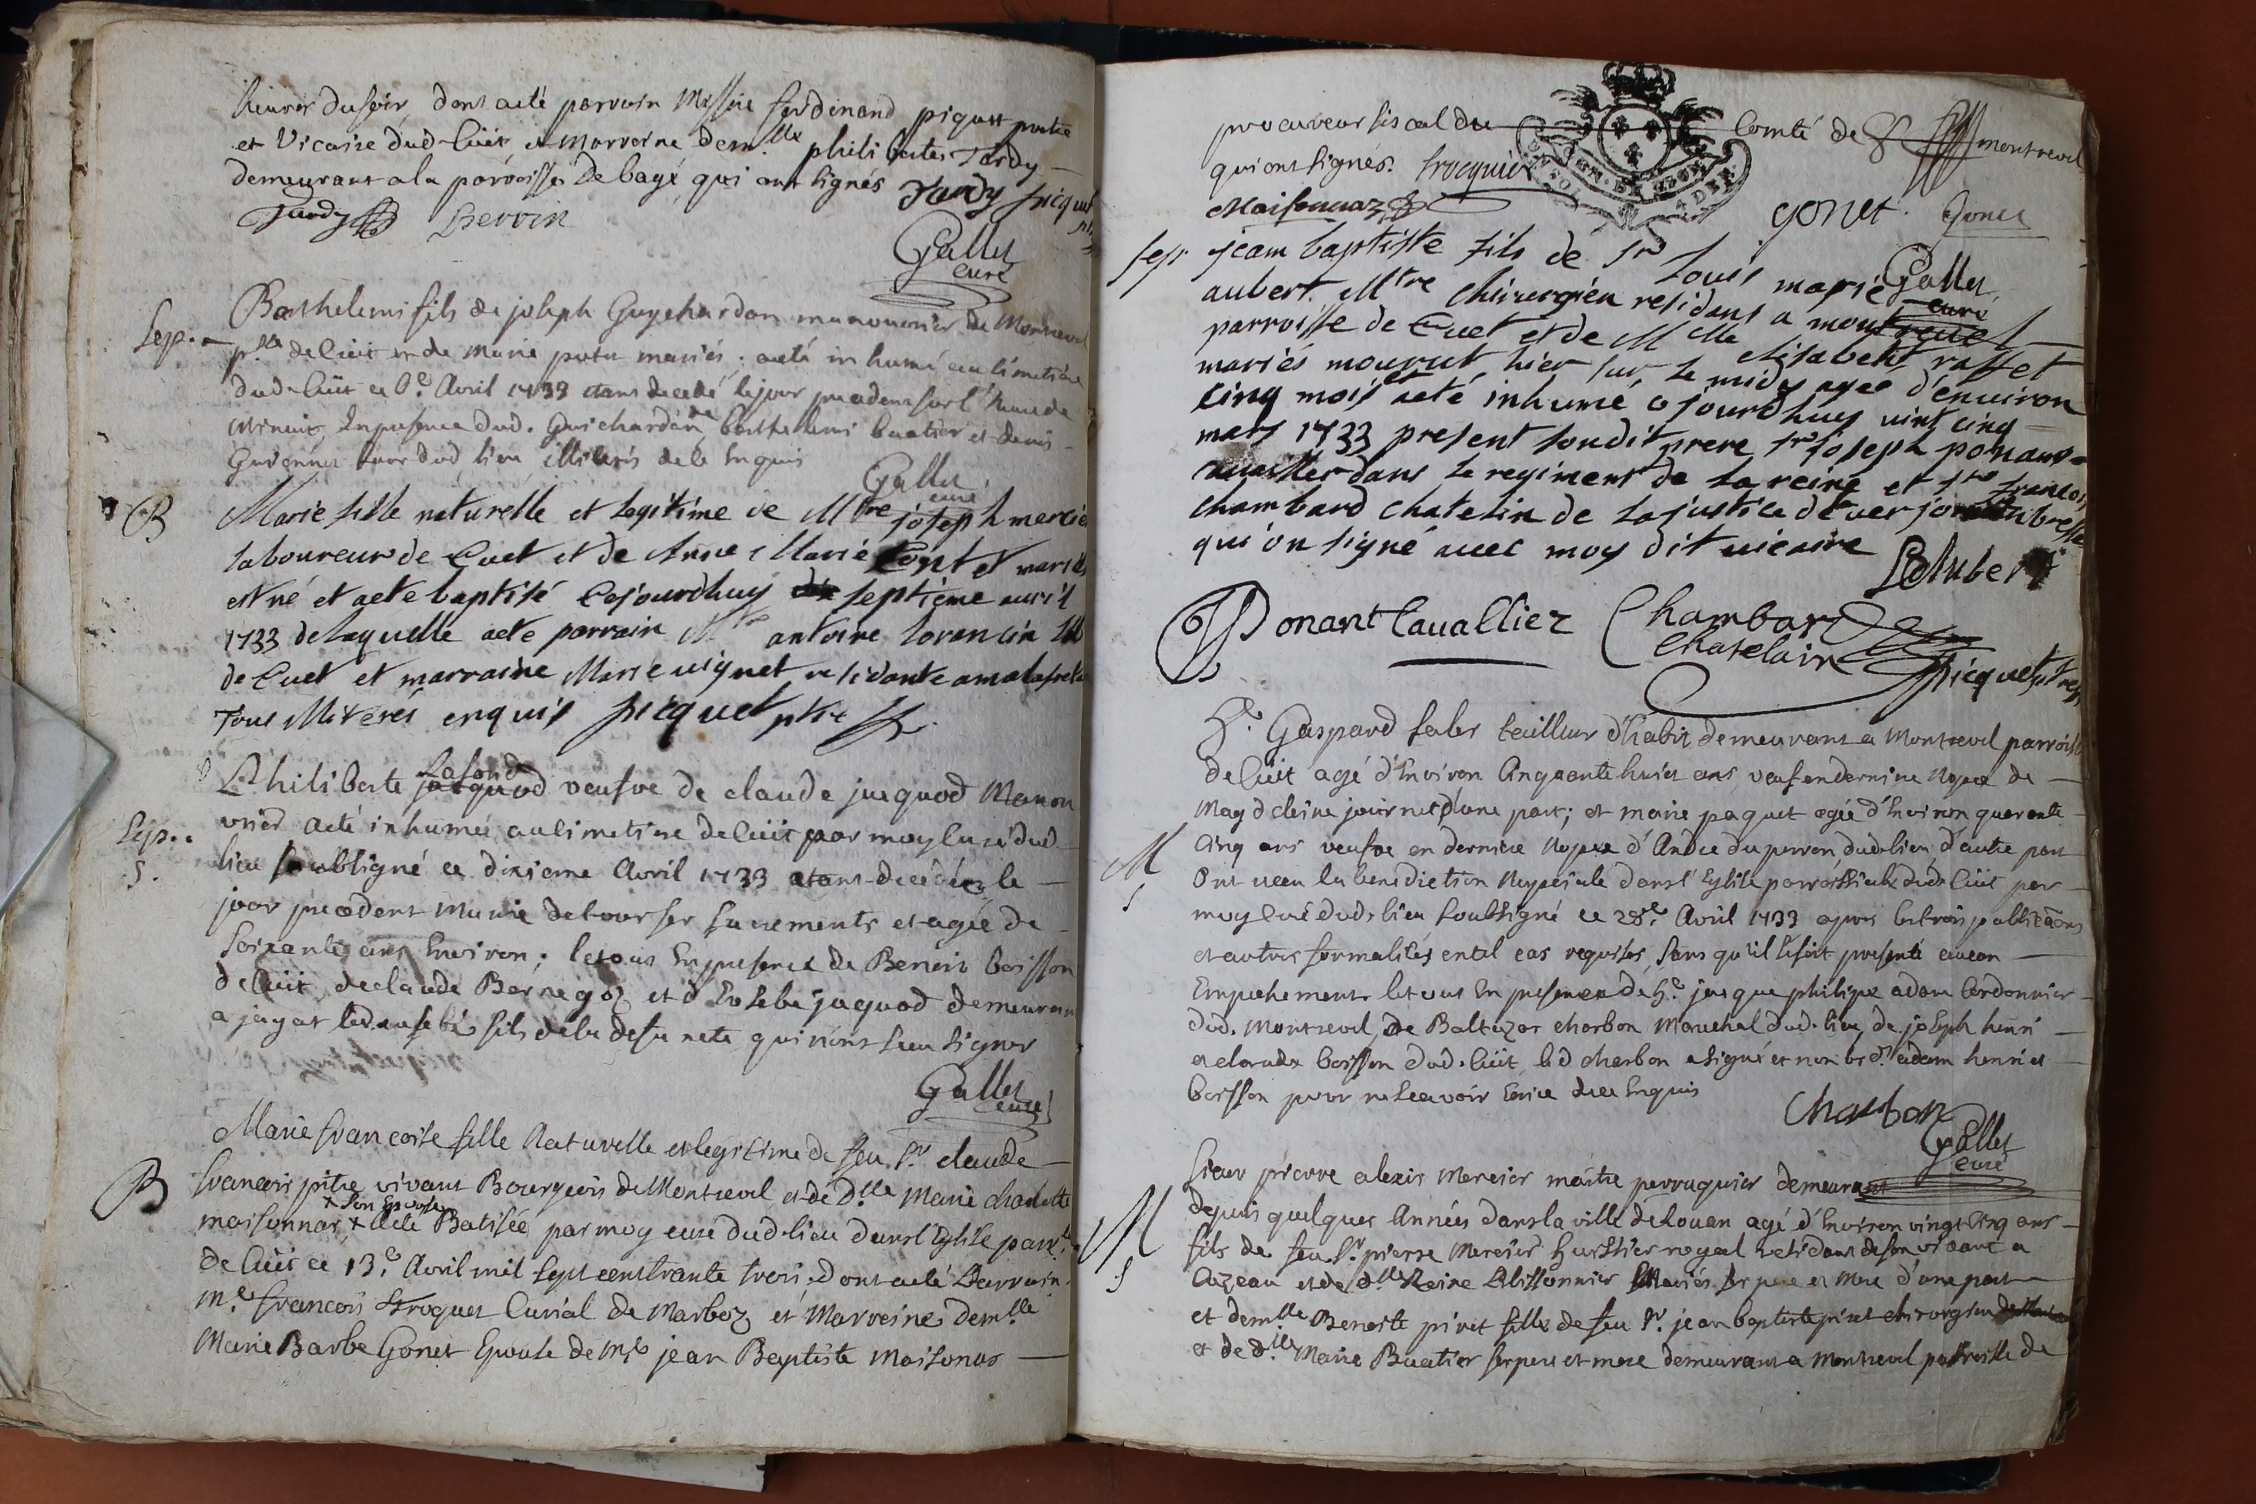 heures du soir, dont acté parrain Messire ferdinand piquet prêtre
et Vicaire dud. Cüét et marraine dem.lle philiberte Tardy
demeurant a la parroisse de bagé, qui ont signés Tardy picquet
Tardy Dervin
Gallet
curé
Sep.
Barthelemi fils de joseph Guychardon manouvrier de Montrevel
p.sse de Cüét et de Marie mariés, a eté inhumé au cimetiere
dud. Cüét ce 6.e Avril 1733 etant decedé le jour precedent sur l'heure de
Minuit, En presence dud. Guichardon, de barthelemi buatier et denis
dud. lieu illiterés de ce Enquis
Gallet
curé
B
Marie fille naturelle et legitime de Mtre joseph mercier
laboureur de Cuet et de Anne Marie mariés
est né et a ete baptisé cejourdhuy septième auril
1733 de laquelle a ete parrain Mtre antoine lorancin
de Cuet et marraine Marie uignet residante a malafreta
Tous illiterés enquis picquet ptre
lafond
Philiberte jacquod veufve de claude jacquod Manou
Sep.
vrier a eté inhumée au cimetiere de Cüét par moy curé dud.
S.
lieu soubsigné ce dixieme Avril 1733 etant decedée le
jour precedent munie de tous ses sacrements et agée de
Soixante ans Environ; le tout En presence de Benoit boisson
de Cüét, de claude Bernegoz et d'Eusebe jaquod demeurant
a jayat led. eusebe fils de la defunete qui n'ont sceu signer
Gallet
curé
Marie francoise fille Naturelle et legitime de feu S.r claude
B
francois pitre vivant Bourgeois de Montrevel et de D.lle Marie charlotte
x son Epouse
maisonnas, x a eté Batisée par moy curé dud. lieu dans l'Eglise parr.le
de Cüét ce 13.e Avril mil sept cent trante trois; dont a eté Parrain
M.e francois troquet Curial de Marboz et Marreine dem.lle
Marie Barbe Gonet Epouse de M.e jean Baptiste Maisonas
procureur fiscal du Comté de montrevel
qui ont signés. trocquier
Maisonnaz gonet Gonet
Gallet
curé
Sep.
jean baptiste fils de Sr louis marie
aubert Mtre Chirurgien residant a montreuel
parroisse de Cuet et de Mlle elisabeht raffet
mariés mourut hier sur le midy agé d'enuiron
cinq mois a eté inhumé cejourdhuy uint cinq
mars 1733 present soudit prere Sr joseph ponant
caualier dans le regiment de la reine et Sr francois
chambard chatelin de la justice de uerjon en bresse
qui on signé auec moy dit uicaire LAubert
Ponant Cauallier Chambard
Chatelain
picquet ptre
h.e Gaspard faler tailleur d'habit demeurant a Montrevel parroisse
de Cüét agé d'Environ Cinquante huit ans veuf en derniere Nopce de
Magdeleine journet, d'une part; et marie paquet agée d'Environ quarante
M
Cinq ans veufve en derniere Nopce d'Andre duperron dud. lieu, d'autre part
S
Ont receu la benediction Nuptiale dans l'Eglise parroissiale dud. Cüét par
moy Curé dud. lieu soussigné ce 28.e Avril 1733 apres les trois publications
et autres formalités en tel cas requises, Sans qu'il se soit presenté aucun
Empechement. le tout En presence de h.e jacque philipe adam Cordonnier
dud. Montrevel, de Baltazar charbon Marechal dud. lieu, de joseph henri
et claude boisson dud. Cüét, led. charbon a signé et non les d. adam henri et
boisson pour ne scavoir Ecrire de ce Enquis
Charbon
Gallet
curé
Sieur pierre alexis Mercier maitre perruquier demeurant
M
depuis quelques Années dans la ville de Rouan agé d'Environ vingt Cinq ans
S
fils de feu S.r pierre Mercier huissier royal residant de son vivant a
Cuzeau et de d.lle Reine Mariés ses pere et Mere d'une part
et dem.lle Benoite pivet fille de feu S.r jean baptiste pivet chirurgien
et de d.lle Marie Buatier ses pere et mere demeurant a Montrevel parroisse de